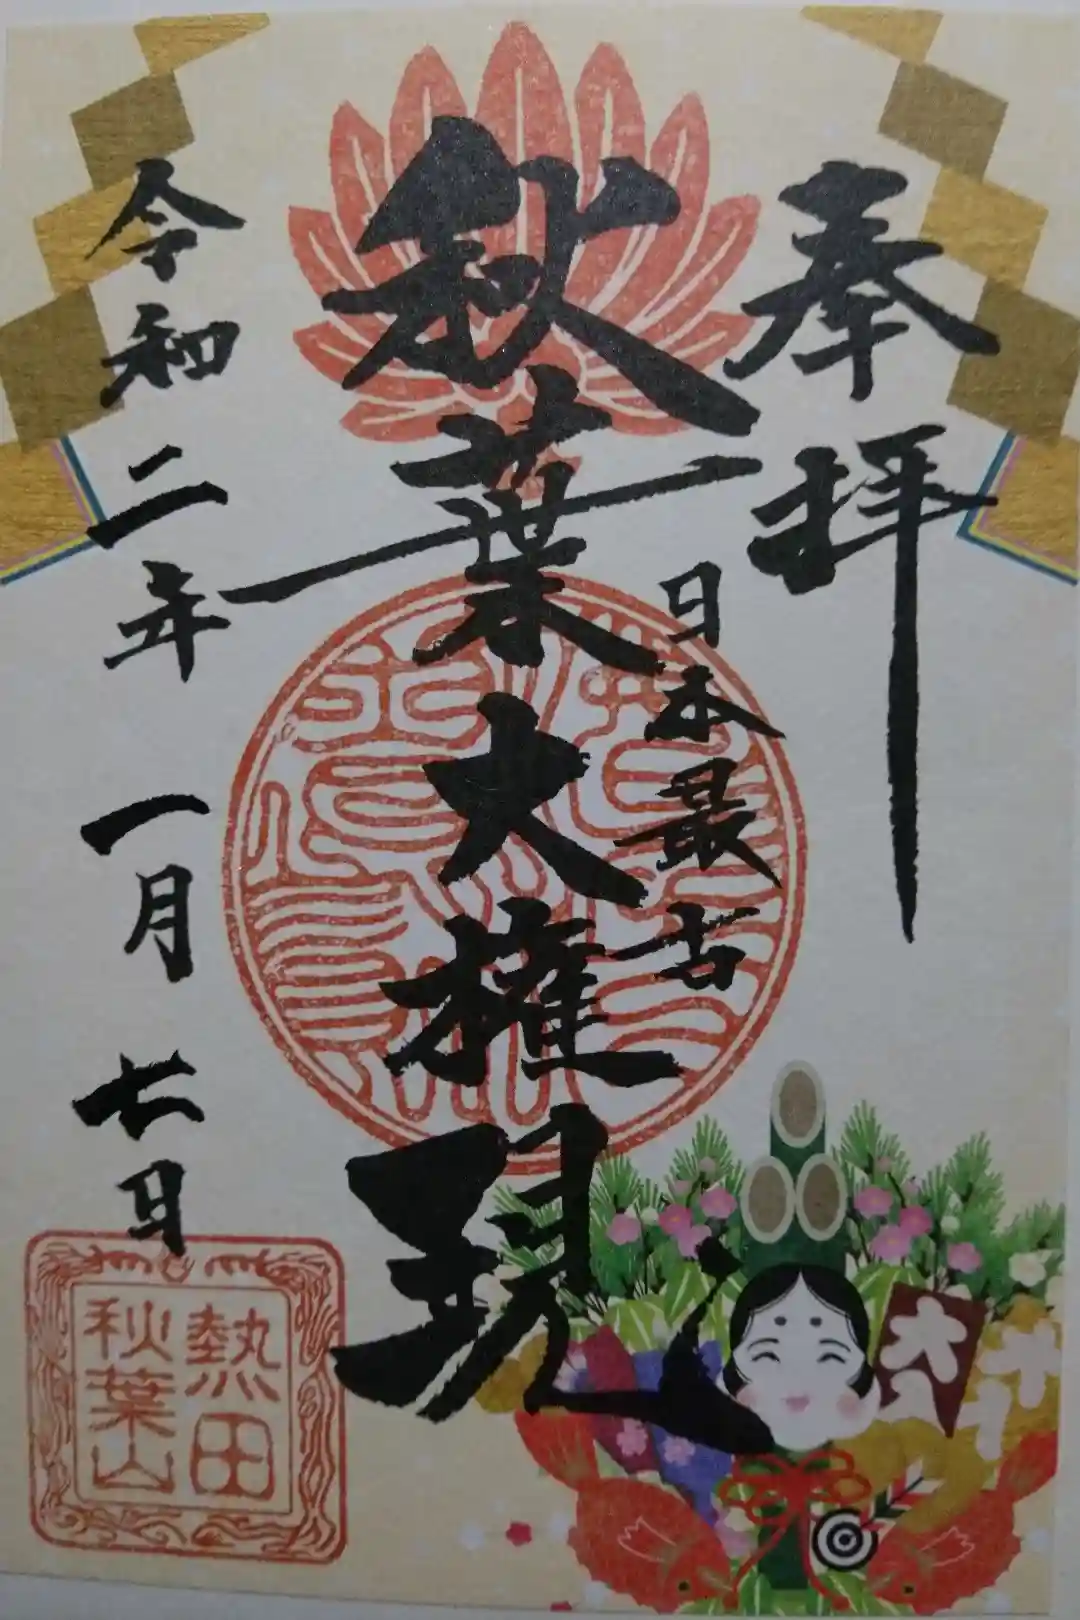 奉拝
日本最古
秋葉大権現
令和二年 一月 七日
熱田
秋葉山